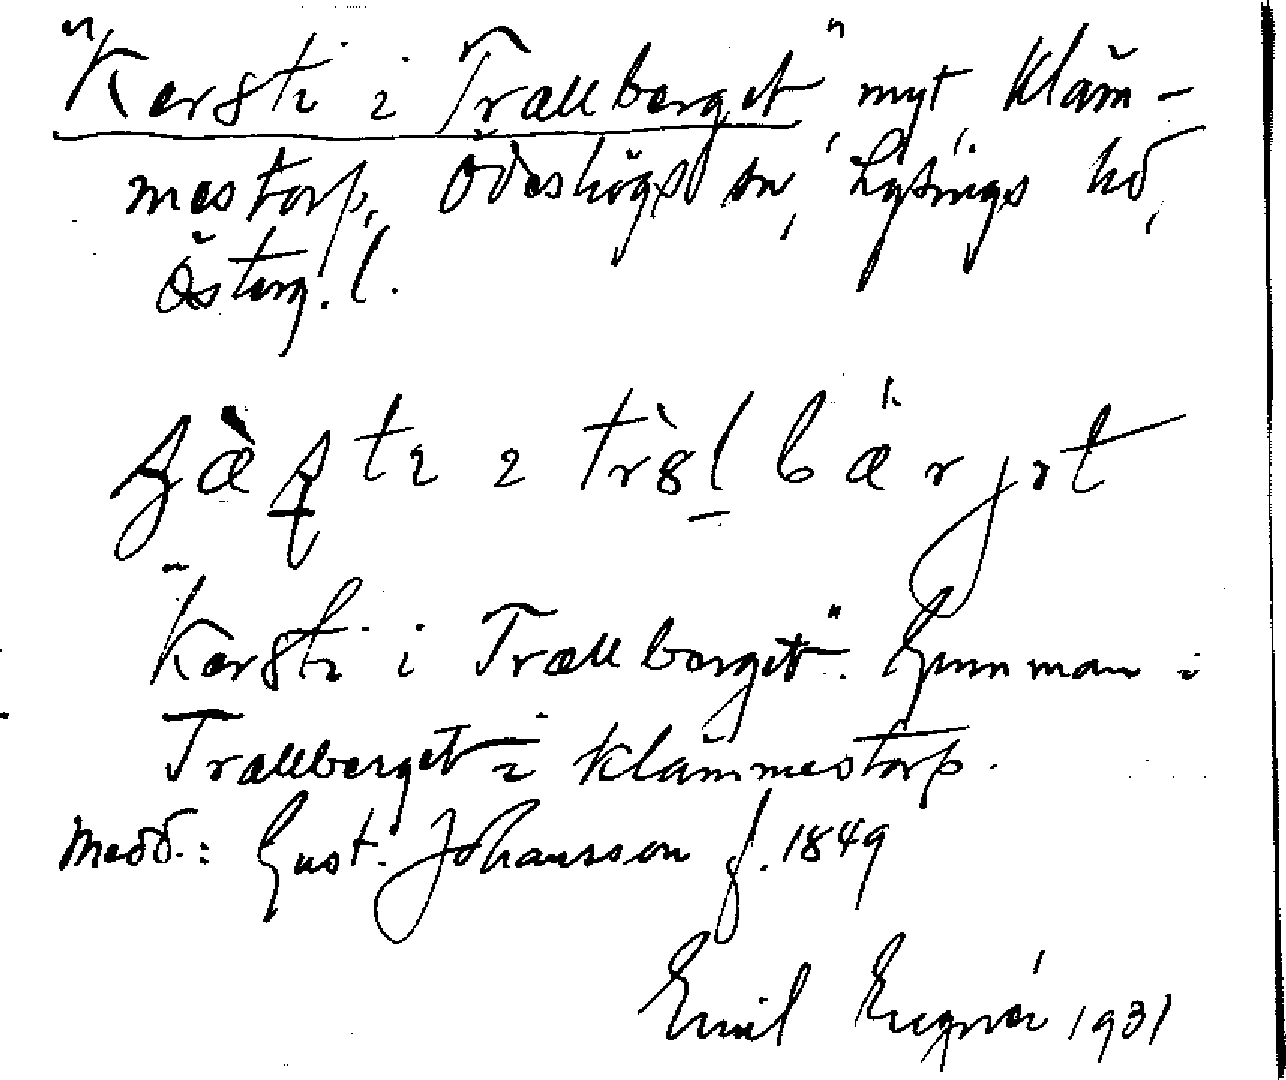 "Kersti i Trællberget" myt Kläm-
mestorp, Ödeshögs sn, Lysings hd,
Österg. l.
"Kersti i Trællberget". Gumman i
Trællberget i Klämmestorp.
Medd.: Gust. Johansson f. 1849
Emil 1931